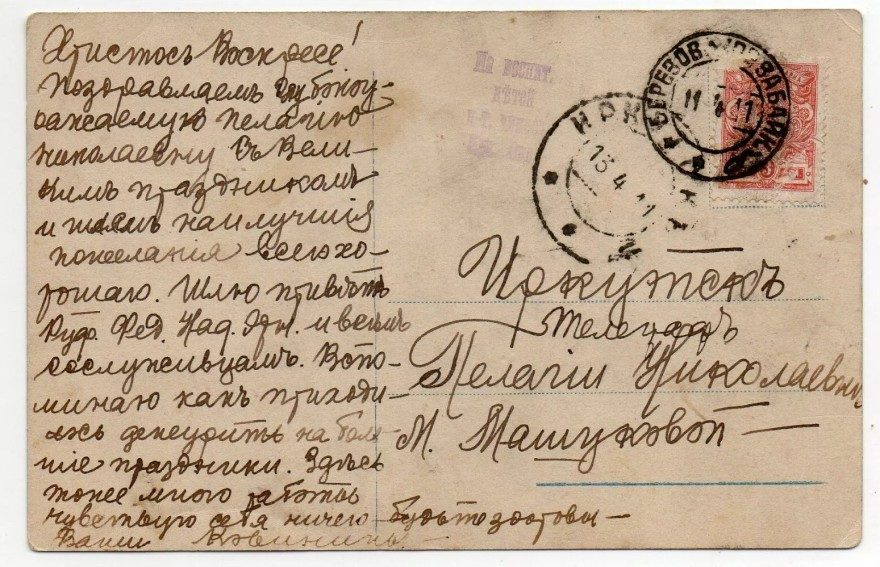 Христосъ Воскресе!
Поздравляемъ глубокоу-
важаемую Пелагiю
Николаевну съ Вели-
кимъ праздникомъ
и шлемъ наилучшiя
пожеланiя всего хо-
рошаго. Шлю привѣтъ
Фед. Над. и всѣмъ
сослуживцамъ. Вспо-
минаю какъ приходи-
лось дежурить на боль-
шiе праздники. Здѣсь
тоже много работы
чувствую себя ничего – будьте здоровы –
Ваши
На воспит.
дѣтей
БЕРЕЗОВ ЗАБАЙК.
11 4 11
ИРК
13 4 11
Иркутскъ
Телеграфъ
Пелагiи Николаевнѣ
М. Машуковой –